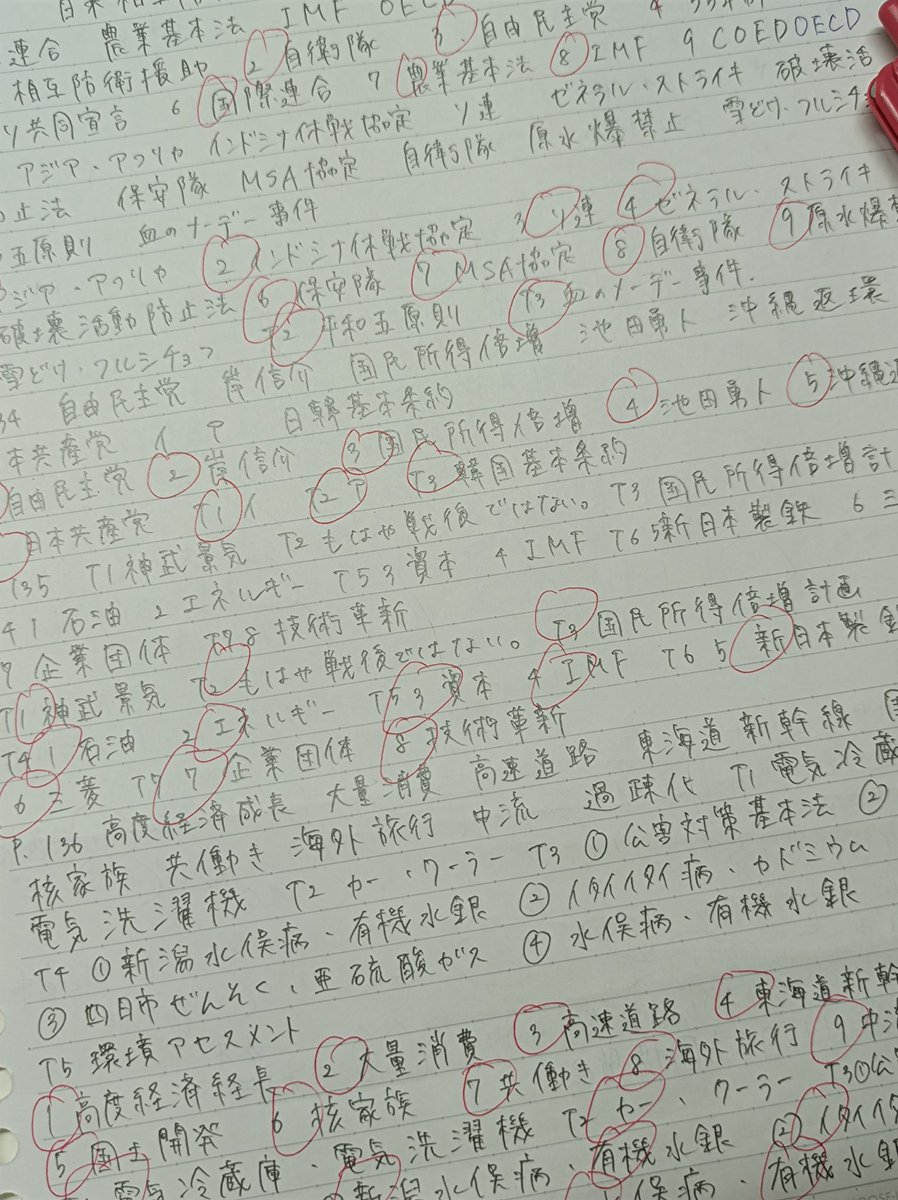 連合 農業基本法 IMF OECD 3 自由民主党 4
相互防衛援助 2 自衛隊 7 農業基本法 8 IMF 9 COEDOECD
ソ共同宣言 6 国際連合 ゼネラル・ストライキ 破壊活
アジア・アフリカ インドシナ休戦協定 ソ連 原水爆禁止 雪どけ・フルシチョ
止法 保安隊 MSA協定 自衛隊
五原則 血のメーデー事件 3 ソ連 4 ゼネラル・ストライキ
ジア・アフリカ 2 インドシナ休戦協定 8 自衛隊 9 原水爆禁
破壊活動防止法 6 保安隊 7 MSA協定
雪どけ・フルシチョフ T2 平和五原則 T3 血のメーデー事件.
34 自由民主党 岸信介 国民所得倍増 池田勇人 沖縄返還
本共産党 イ ア 日韓基本条約
自由民主党 2 岸信介 3 国民所得倍増 4 池田勇人 5 沖縄返
日本共産党 T1 イ T2 ア T3 韓国基本条約
T35 T1 神武景気 T2 もはや戦後ではない。 T3 国民所得倍増計
41 石油 2 エネルギー T5 3 資本 4 IMF T6 5 新日本製鉄 6 三
7 企業団体 T7 8 技術革新
T1 神武景気 T2 もはや戦後ではない。 T3 国民所得倍増計画
T4 1 石油 2 エネルギー T5 3 資本 4 IMF T6 5 新日本製鉄
6 三菱 T7 7 企業団体 8 技術革新
P.136 高度経済成長 大量消費 高速道路 東海道新幹線 国
核家族 共働き 海外旅行 中流 過疎化 T1 電気冷蔵
電気洗濯機 T2 カー、クーラー T3 ① 公害対策基本法 ②
T4 ① 新潟水俣病、有機水銀 ② イタイイタイ病、カドミウム
③ 四日市ぜんそく、亜硫酸ガス ④ 水俣病、有機水銀
T5 環境アセスメント
1 高度経済経長 2 大量消費 3 高速道路 4 東海道新幹
5 国土開発 6 核家族 7 共働き 8 海外旅行 9 中流
電気冷蔵庫、電気洗濯機 T2 カー、クーラー T3 ① 公
新潟水俣病、有機水銀 ② イタイイタ
俣病、有機水銀